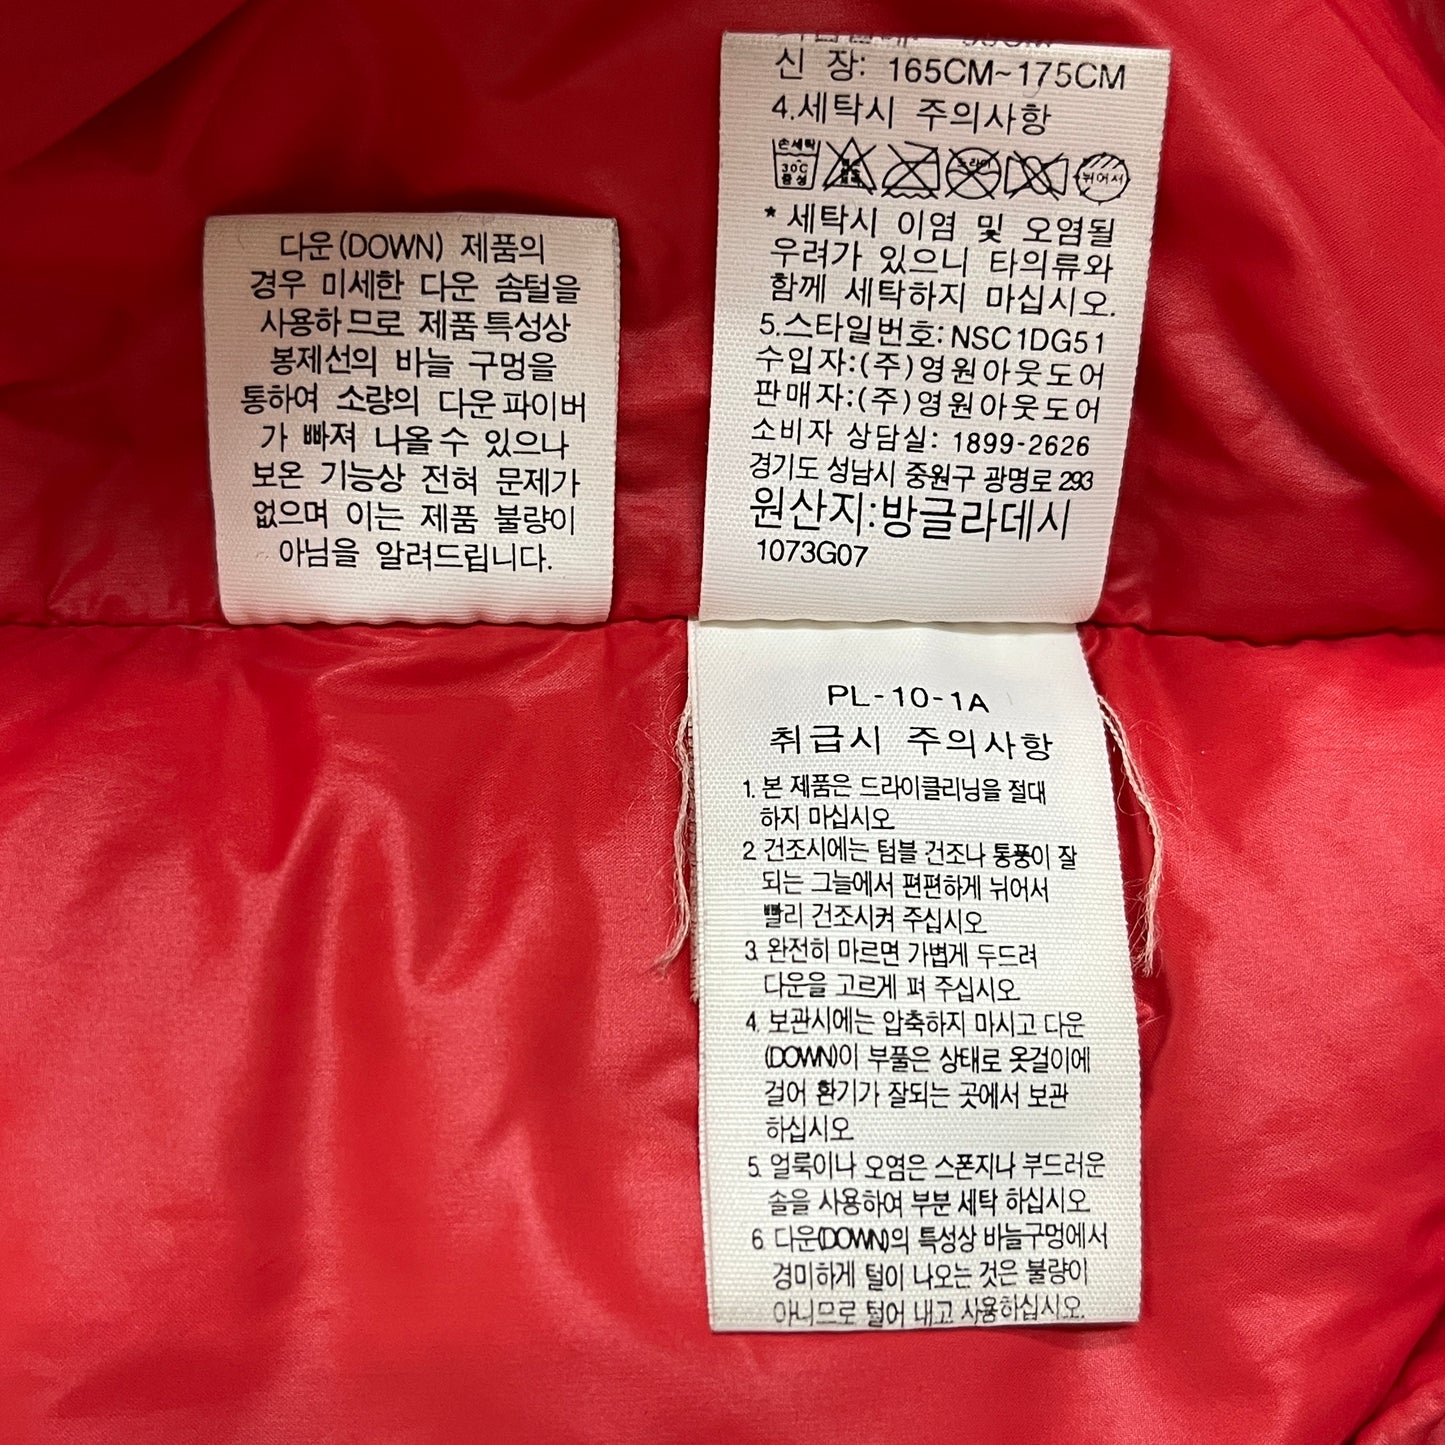 다운(DOWN) 제품의
경우 미세한 다운 솜털을
사용하므로 제품특성상
봉제선의 바늘 구멍을
통하여 소량의 다운파이버
가 빠져 나올수 있으나
보온 기능상 전혀 문제가
없으며 이는 제품 불량이
아님을 알려드립니다.
신 장: 165CM~175CM
4.세탁시 주의사항
손세탁 30℃ 중성 드라이 뉘어서
* 세탁시 이염 및 오염될
우려가 있으니 타의류와
함께 세탁하지 마십시오.
5.스타일번호:NSC1DG51
수입자:(주)영원아웃도어
판매자:(주)영원아웃도어
소비자 상담실: 1899-2626
경기도 성남시 중원구 광명로 293
원산지:방글라데시
1073G07
PL-10-1A
취급시 주의사항
1. 본 제품은 드라이클리닝을 절대
하지 마십시오
2. 건조시에는 텀블 건조나 통풍이 잘
되는 그늘에서 편편하게 뉘어서
빨리 건조시켜 주십시오
3. 완전히 마르면 가볍게 두드려
다운을 고르게 펴 주십시오
4. 보관시에는 압축하지 마시고 다운
(DOWN)이 부풀은 상태로 옷걸이에
걸어 환기가 잘되는 곳에서 보관
하십시오
5. 얼룩이나 오염은 스폰지나 부드러운
솔을 사용하여 부분 세탁 하십시오
6. 다운(DOWN)의 특성상 바늘구멍에서
경미하게 털이 나오는 것은 불량이
아니므로 털어 내고 사용하십시오.